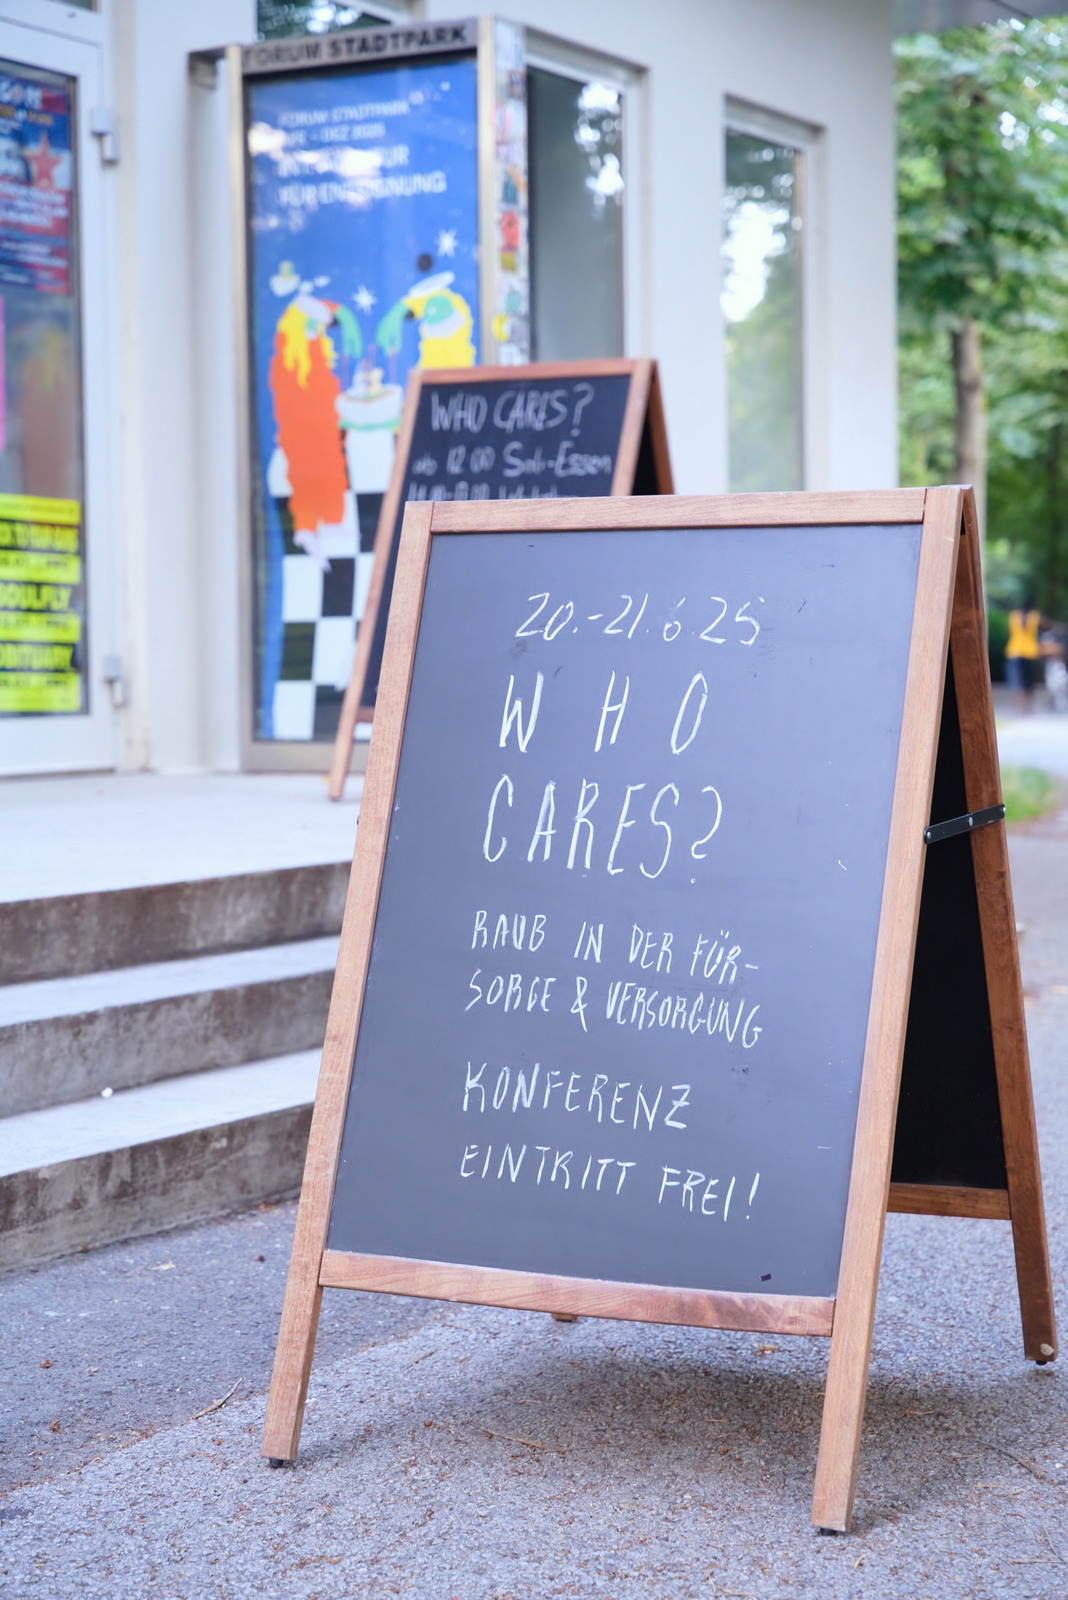 FORUM STADTPARK
FORUM STADTPARK
- DEZ 2025
WHO CARES?
ab 12:00 Soli-Essen
20.-21.6.25
WHO
CARES?
RAUB IN DER FÜR-
SORGE & VERSORGUNG
KONFERENZ
EINTRITT FREI!
SOULFLY
OBITUARY